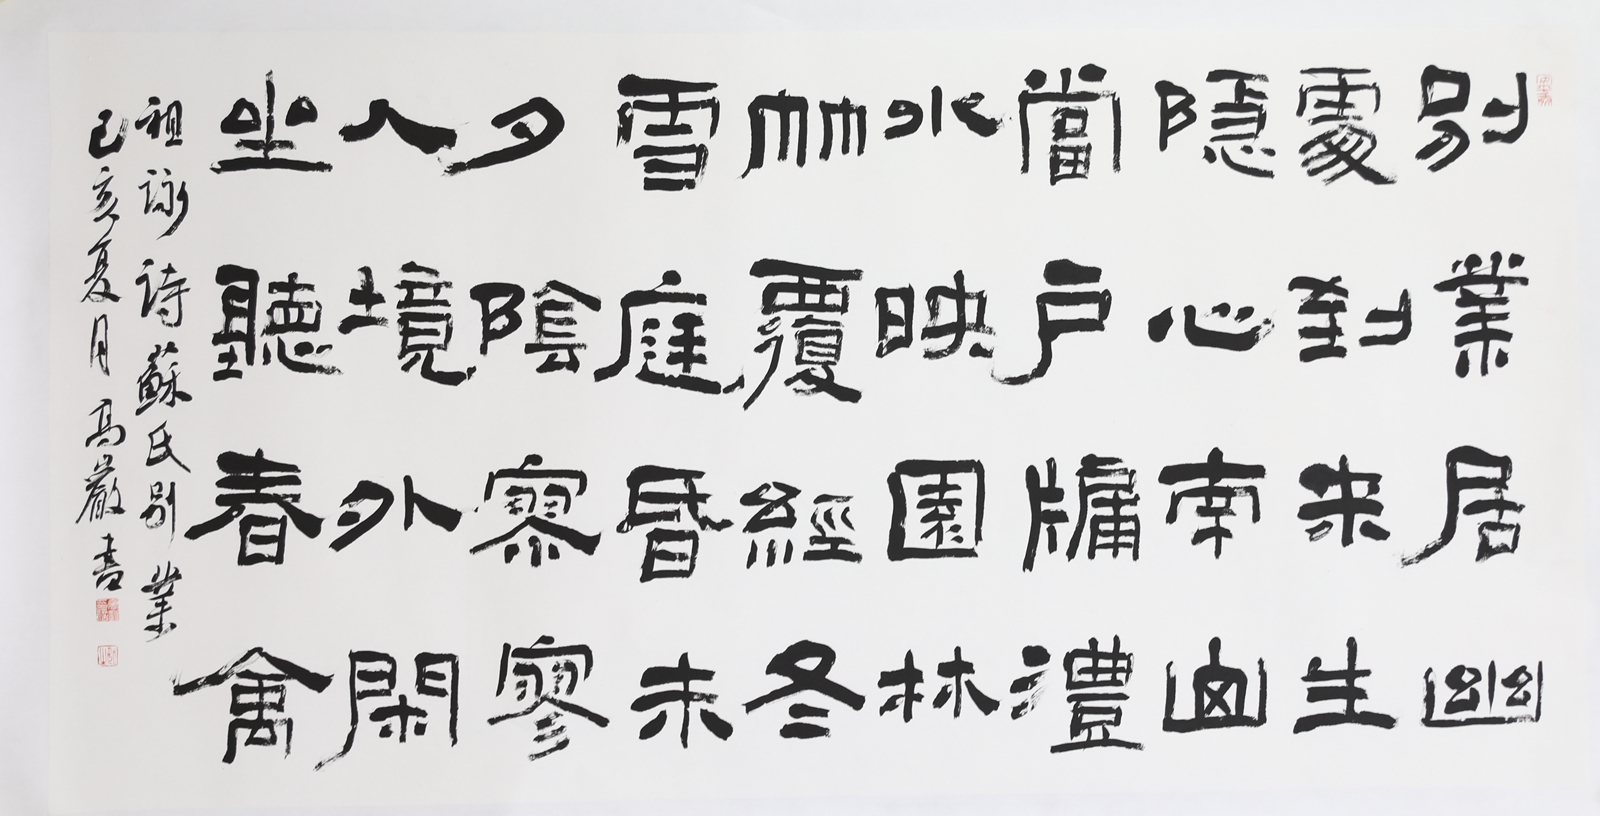 別業居幽
處到来生
隱心南山
當户牖澧
水映園林
竹覆經冬
雪庭昏未
夕陰寥寥
人境外閑
坐聽春禽
祖詠詩蘇氏別業
己亥夏月高巖書